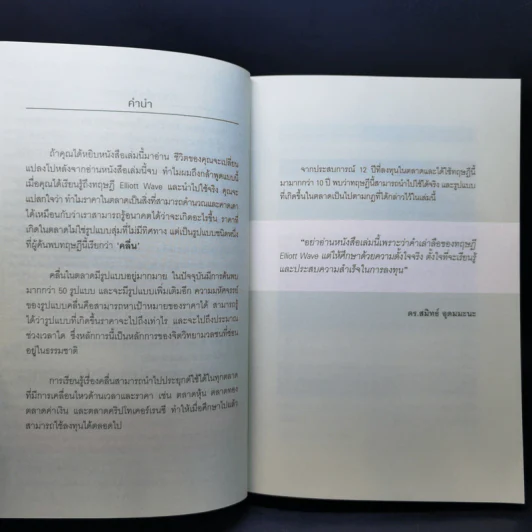 คำนำ
ถ้าคุณได้หยิบหนังสือเล่มนี้มาอ่าน ชีวิตของคุณจะเปลี่ยน
แปลงไปหลังจากอ่านหนังสือเล่มนี้จบ ทำไมผมถึงกล้าพูดแบบนี้
เมื่อคุณได้เรียนรู้ถึงทฤษฎี Elliott Wave และนำไปใช้จริง คุณจะ
แปลกใจว่า ทำไมราคาในตลาดเป็นสิ่งที่สามารถคำนวณและคาดเดา
ได้เหมือนกับว่าเราสามารถรู้อนาคตได้ว่าจะเกิดอะไรขึ้น ราคาที่
เกิดในตลาดไม่ใช่รูปแบบสุ่มที่ไม่มีทิศทาง แต่เป็นรูปแบบชนิดหนึ่ง
ที่ผู้ค้นพบทฤษฎีนี้เรียกว่า 'คลื่น'
คลื่นในตลาดมีรูปแบบอยู่มากมาย ในปัจจุบันมีการค้นพบ
มากกว่า 50 รูปแบบ และจะมีรูปแบบเพิ่มเติมอีก ความมหัศจรรย์
ของรูปแบบคลื่นคือสามารถหาเป้าหมายของราคาได้ สามารถรู้
ได้ว่ารูปแบบที่เกิดขึ้นราคาจะไปถึงเท่าไร และจะไปถึงประมาณ
ช่วงเวลาใด ซึ่งหลักการนี้เป็นหลักการของจิตวิทยามวลชนที่ซ่อน
อยู่ในธรรมชาติ
การเรียนรู้เรื่องคลื่นสามารถนำไปประยุกต์ใช้ได้ในทุกตลาด
ที่มีการเคลื่อนไหวด้านเวลาและราคา เช่น ตลาดหุ้น ตลาดทอง
ตลาดค่าเงิน และตลาดคริปโทเคอร์เรนซี ทำให้เมื่อศึกษาไปแล้ว
สามารถใช้ลงทุนได้ตลอดไป
จากประสบการณ์ 12 ปีที่ลงทุนในตลาดและได้ใช้ทฤษฎีนี้
มามากกว่า 10 ปี พบว่าทฤษฎีนี้สามารถนำไปใช้ได้จริง และรูปแบบ
ที่เกิดขึ้นในตลาดเป็นไปตามกฎที่ได้กล่าวไว้ในเล่มนี้
"อย่าอ่านหนังสือเล่มนี้เพราะว่าคำเล่าลือของทฤษฎี
Elliott Wave แต่ให้ศึกษาด้วยความตั้งใจจริง ตั้งใจที่จะเรียนรู้
และประสบความสำเร็จในการลงทุน"
ดร.สมิทธ์ อุดมมะนะ